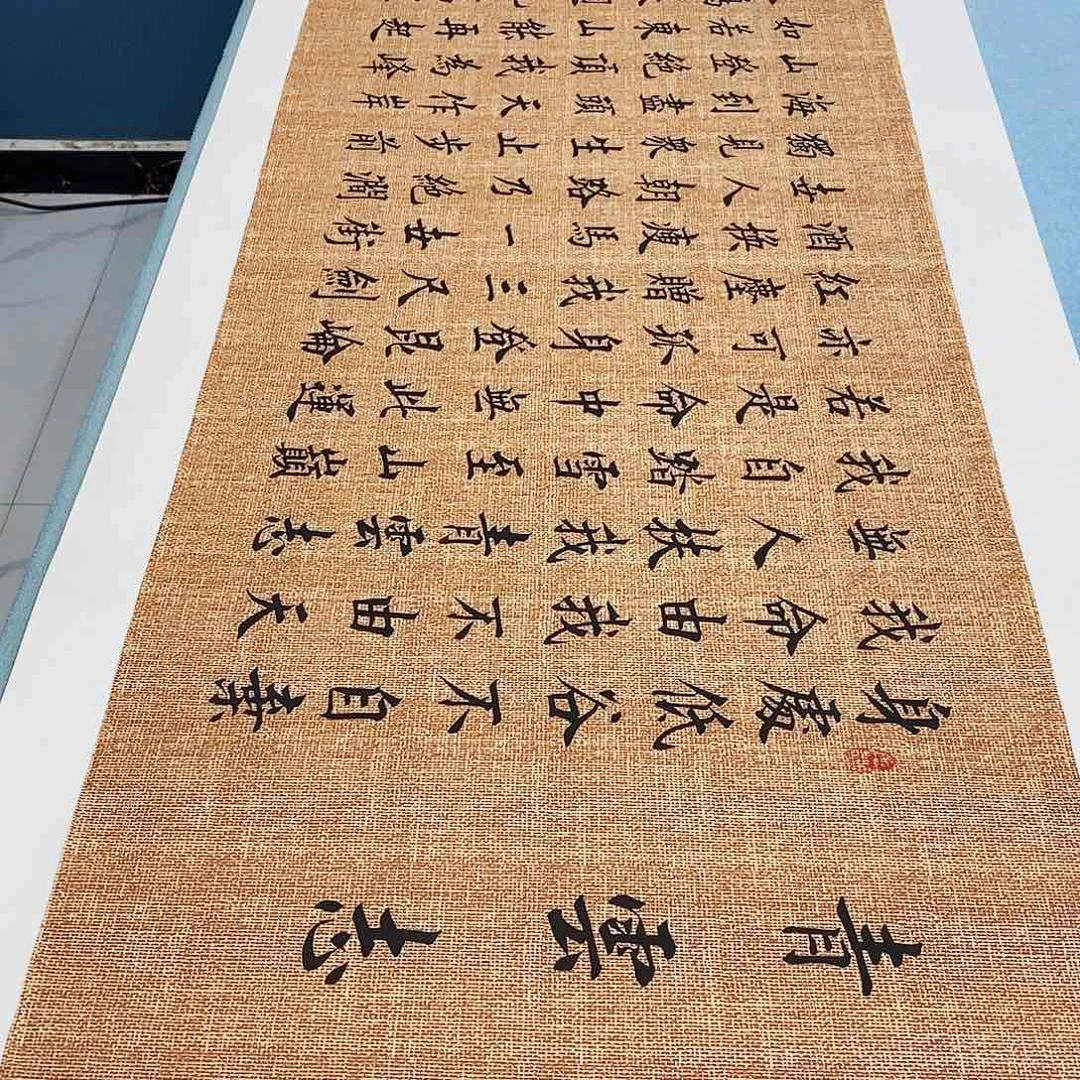 青雲志
身處低谷不自棄
我命由我不由天
無人扶我青雲志
我自踏雪至山巔
若是命中無此運
亦可孤身登昆崘
紅塵贈我三尺劍
酒換瘦馬一世街
世人朝路乃絕澗
獨見眾生止步前
海到盡頭天作岸
山登絕頂我為峰
如若東山能再起